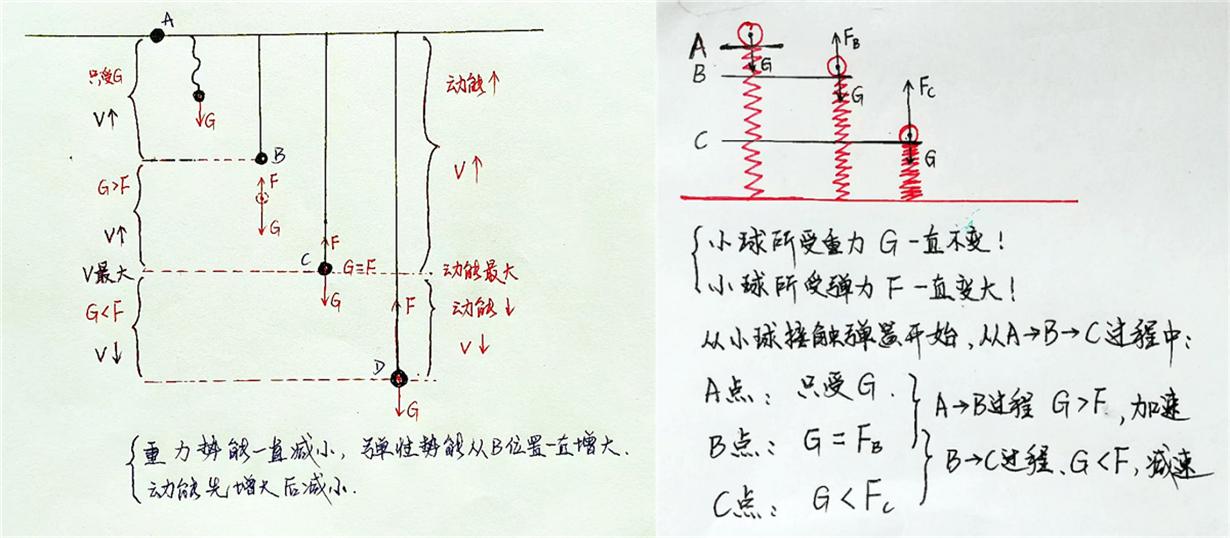 A
只受G
V↑
G
动能↑
V↑
B
G>F
V↑
F
G
C
F
G=F
G
V最大
动能最大
G<F
V↓
F
动能↓
V↓
D
G
重力势能一直减小，弹性势能从B位置一直增大.
动能先增大后减小.
A
G
B
FB
G
C
FC
G
小球所受重力 G 一直不变！
小球所受弹力 F 一直变大！
从小球接触弹簧开始，从A→B→C过程中：
A点： 只受G.
B点： G=FB
C点： G<FC
A→B过程 G>F，加速
B→C过程、G<F，减速